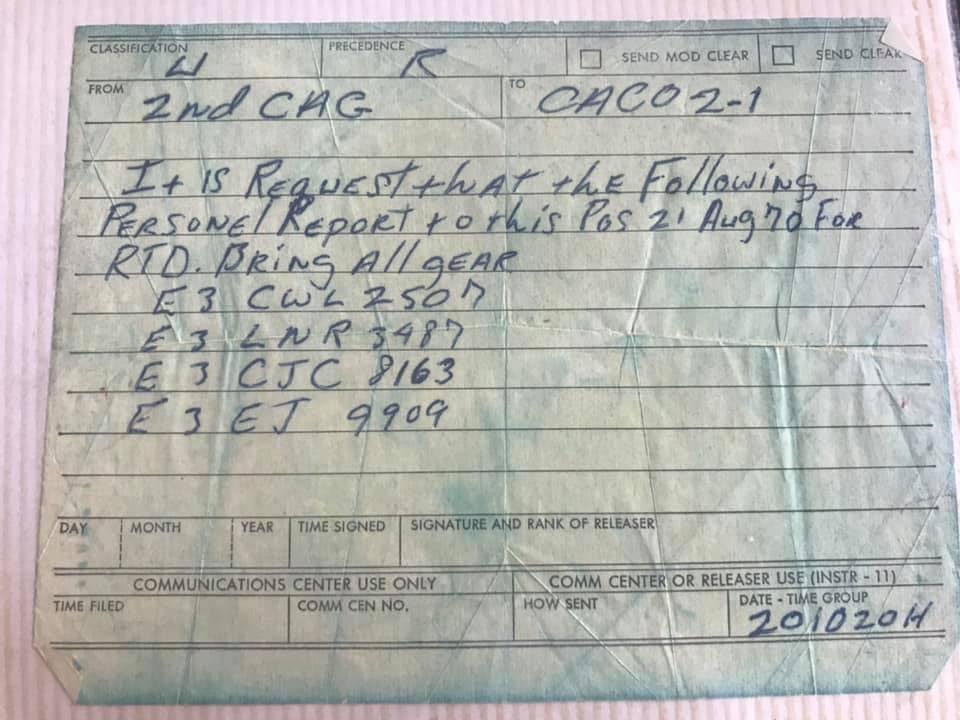 CLASSIFICATION PRECEDENCE SEND MOD CLEAR SEND CLEAR
U R
FROM 2nd CAG TO CACO 2-1
It is Request that the Following
Personel Report to this Pos 21 Aug 70 For
RTD. Bring All gear
E 3 CWL 2507
E 3 LNR 3487
E 3 CJC 8163
E 3 EJ 9909
DAY MONTH YEAR TIME SIGNED SIGNATURE AND RANK OF RELEASER
COMMUNICATIONS CENTER USE ONLY COMM CENTER OR RELEASER USE (INSTR - 11)
TIME FILED COMM CEN NO. HOW SENT DATE - TIME GROUP
201020H